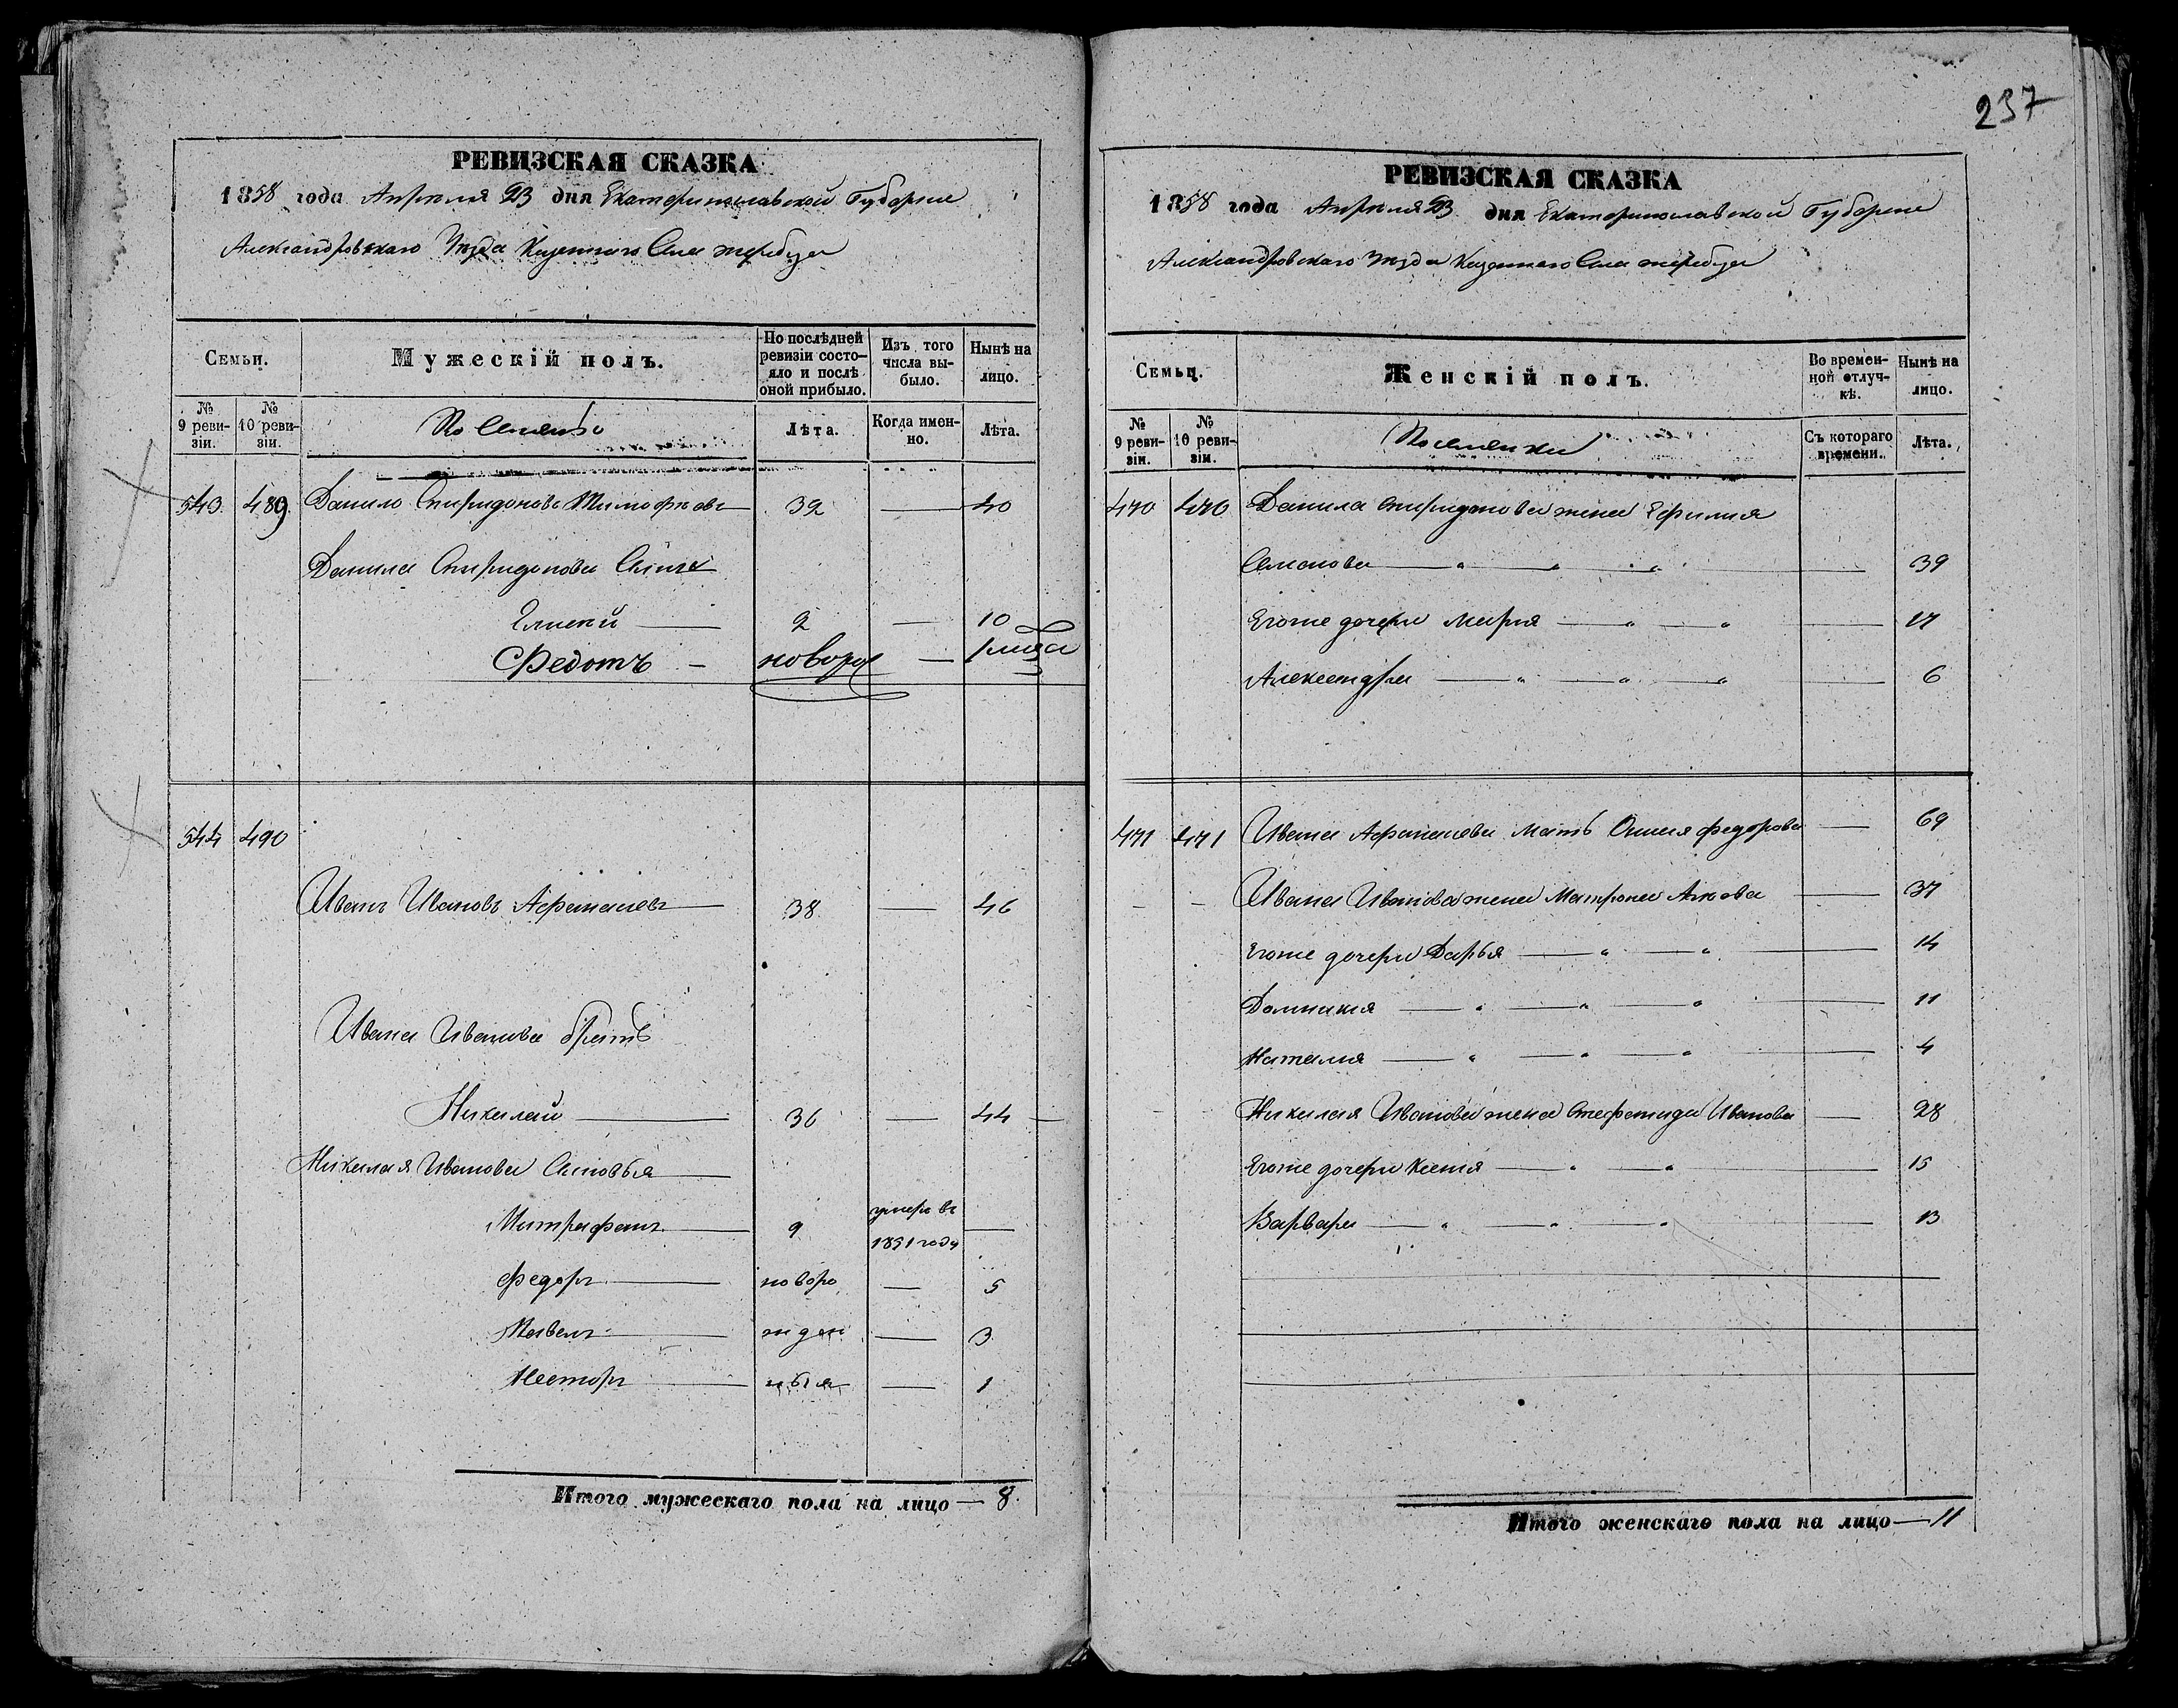 237
РЕВИЗСКАЯ СКАЗКА
1858 года Апреля 23 дня Екатеринославской Губернии
Александровскаго Уезда Казеннаго Села Жеребца
Семьи.
Мужескій полъ.
По послѣдней ревизіи состояло и послѣ оной прибыло.
Изъ того числа выбыло.
Нынѣ на лицо.
№ 9 ревизіи.
№ 10 ревизіи.
Лѣта.
Когда именно.
Лѣта.
543. 489. Данило Спиридоновъ Тимофѣевъ 32 — 40
Данила Спиридонова Сынъ
Елисей — 2 — 10
Федотъ — новорож — 1 года
544 490
Иванъ Ивановъ Афанасьевъ — 38 — 46
Ивана Иванова братъ
Николай — 36 — 44 —
Николая Иванова Сыновья
Митрофанъ — 9 умеръ въ 1851 году —
Федоръ — новоро — 5
Павелъ — жден — 3
Несторъ — ныя — 1
Итого мужескаго пола на лицо — 8.
РЕВИЗСКАЯ СКАЗКА
1858 года Апреля 23 дня Екатеринославской Губернии
Александровскаго Уезда Казеннаго Села Жеребца
Семьи.
Женскій полъ.
Во временной отлучкѣ.
Нынѣ на лицо.
№ 9 ревизіи.
№ 10 ревизіи.
Поселянки
Съ котораго времени.
Лѣта.
470 470 Данила Спиридонова жена Ефимия
Семенова — " — " — " — 39
Егоже дочери Мария — " — " — 17
Александра — " — " — " — 6
471 471 Ивана Афанасьева Мать Федорова — 69
- - Ивана Иванова жена Матрона — 37
Егоже дочери Дарья — " — " — 14
Домникия — " — " — " — 11
Наталия — " — " — " — 4
Николая Иванова жена Стефанида Иванова — 28
Егоже дочери Ксения — " — " — 15
Варвара — " — " — " — 13
Итого женскаго пола на лицо — 11